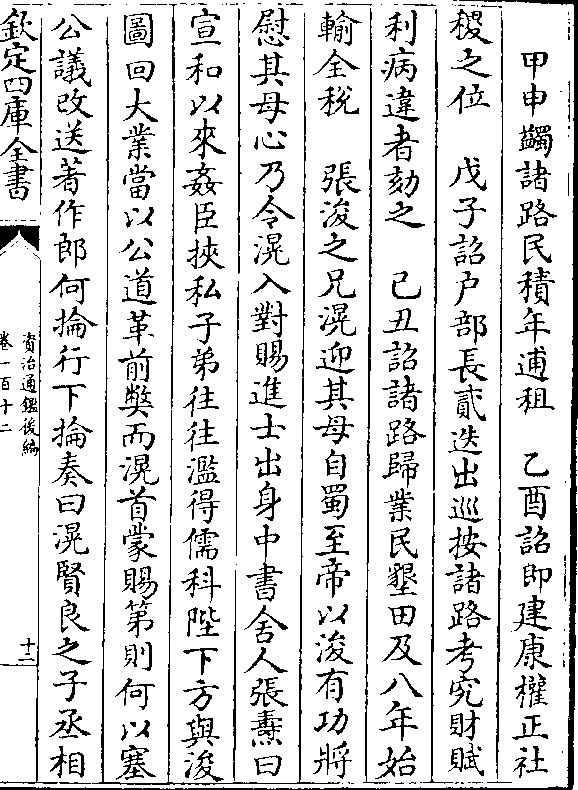 甲申蠲諸路民積年逋租　乙酉詔即建康權正社
稷之位　戊子詔户部長貳迭出巡按諸路考究財賦
利病違者劾之　己丑詔諸路歸業民墾田及八年始
輸全稅　張浚之兄滉迎其母自蜀至帝以浚有功將
慰其母心乃令滉入對賜進士出身中書舍人張燾曰
宣和以來姦臣挾私子弟往往濫得儒科陛下方與浚
圖回大業當以公道革前弊而滉首蒙賜第則何以塞
公議改送著作郎何掄行下掄奏曰滉賢良之子丞相
欽定四庫全書
資治通鑑後編
卷一百十二
十二